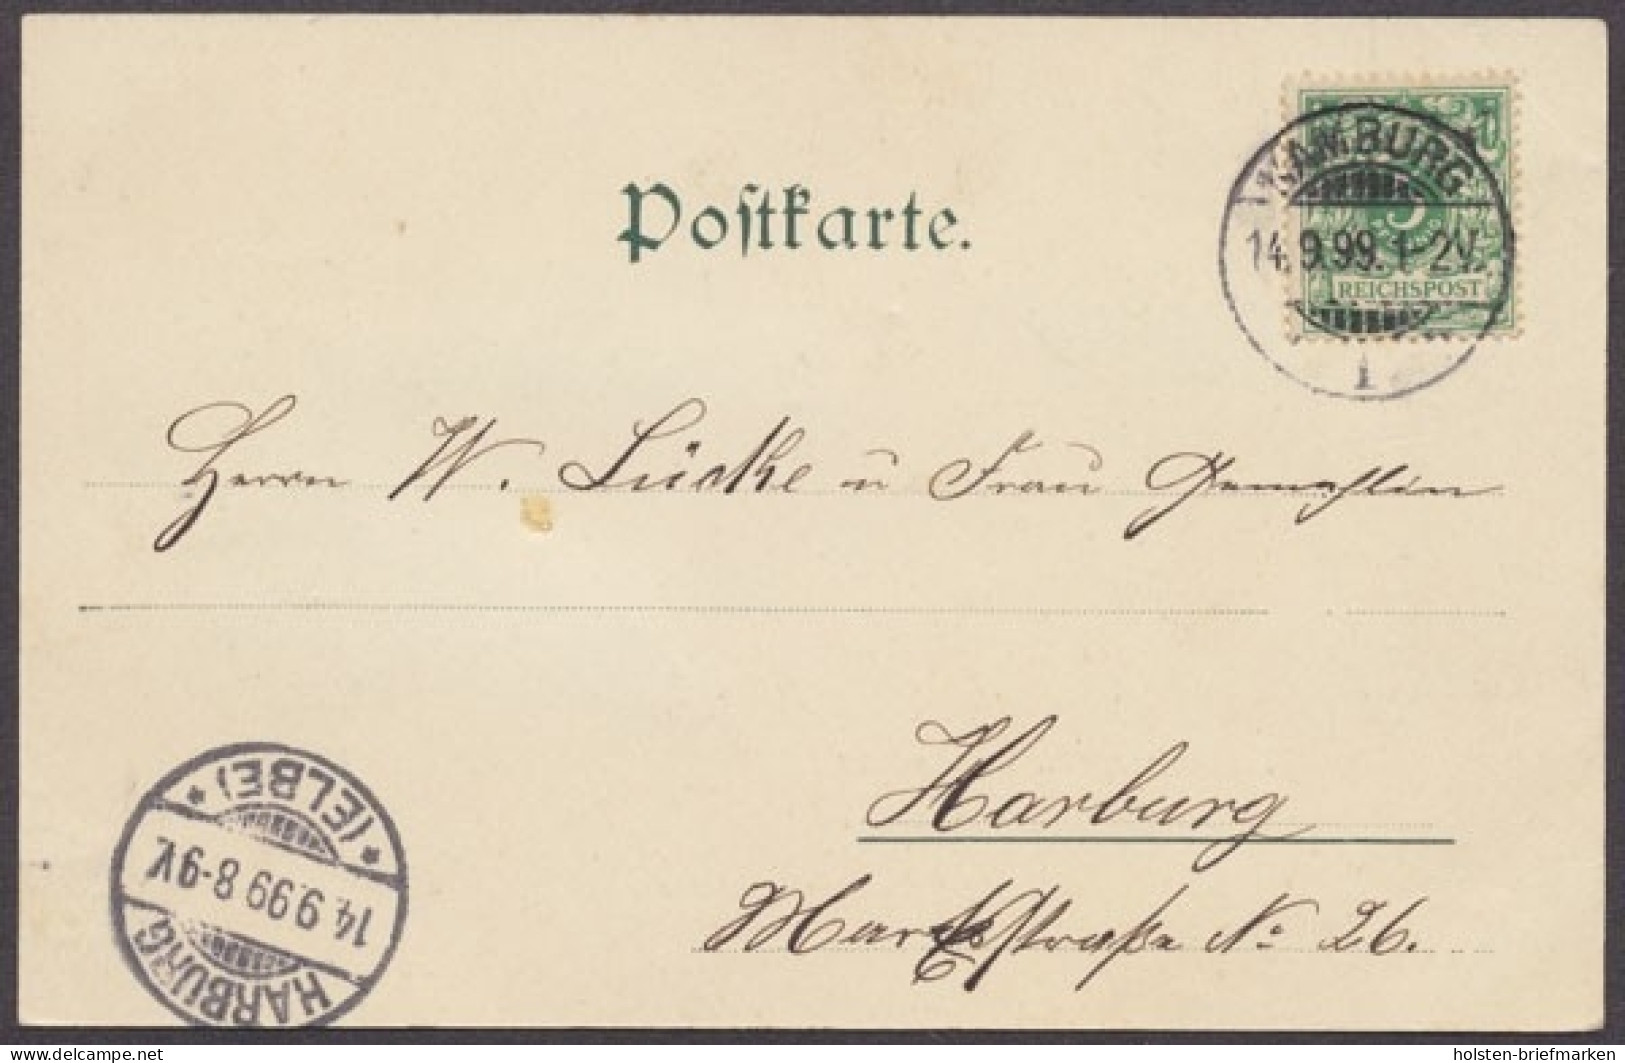 Poſtkarte.
HAMBURG
14.9.99.1-2V.
1
5
REICHSPOST
Herrn W. Lücke u Frau Gemahlin
Harburg
Marktstraße No 26.
HARBURG
14.9.99 8-9V.
*(ELBE)*
delcampe.net
holsten-briefmarken